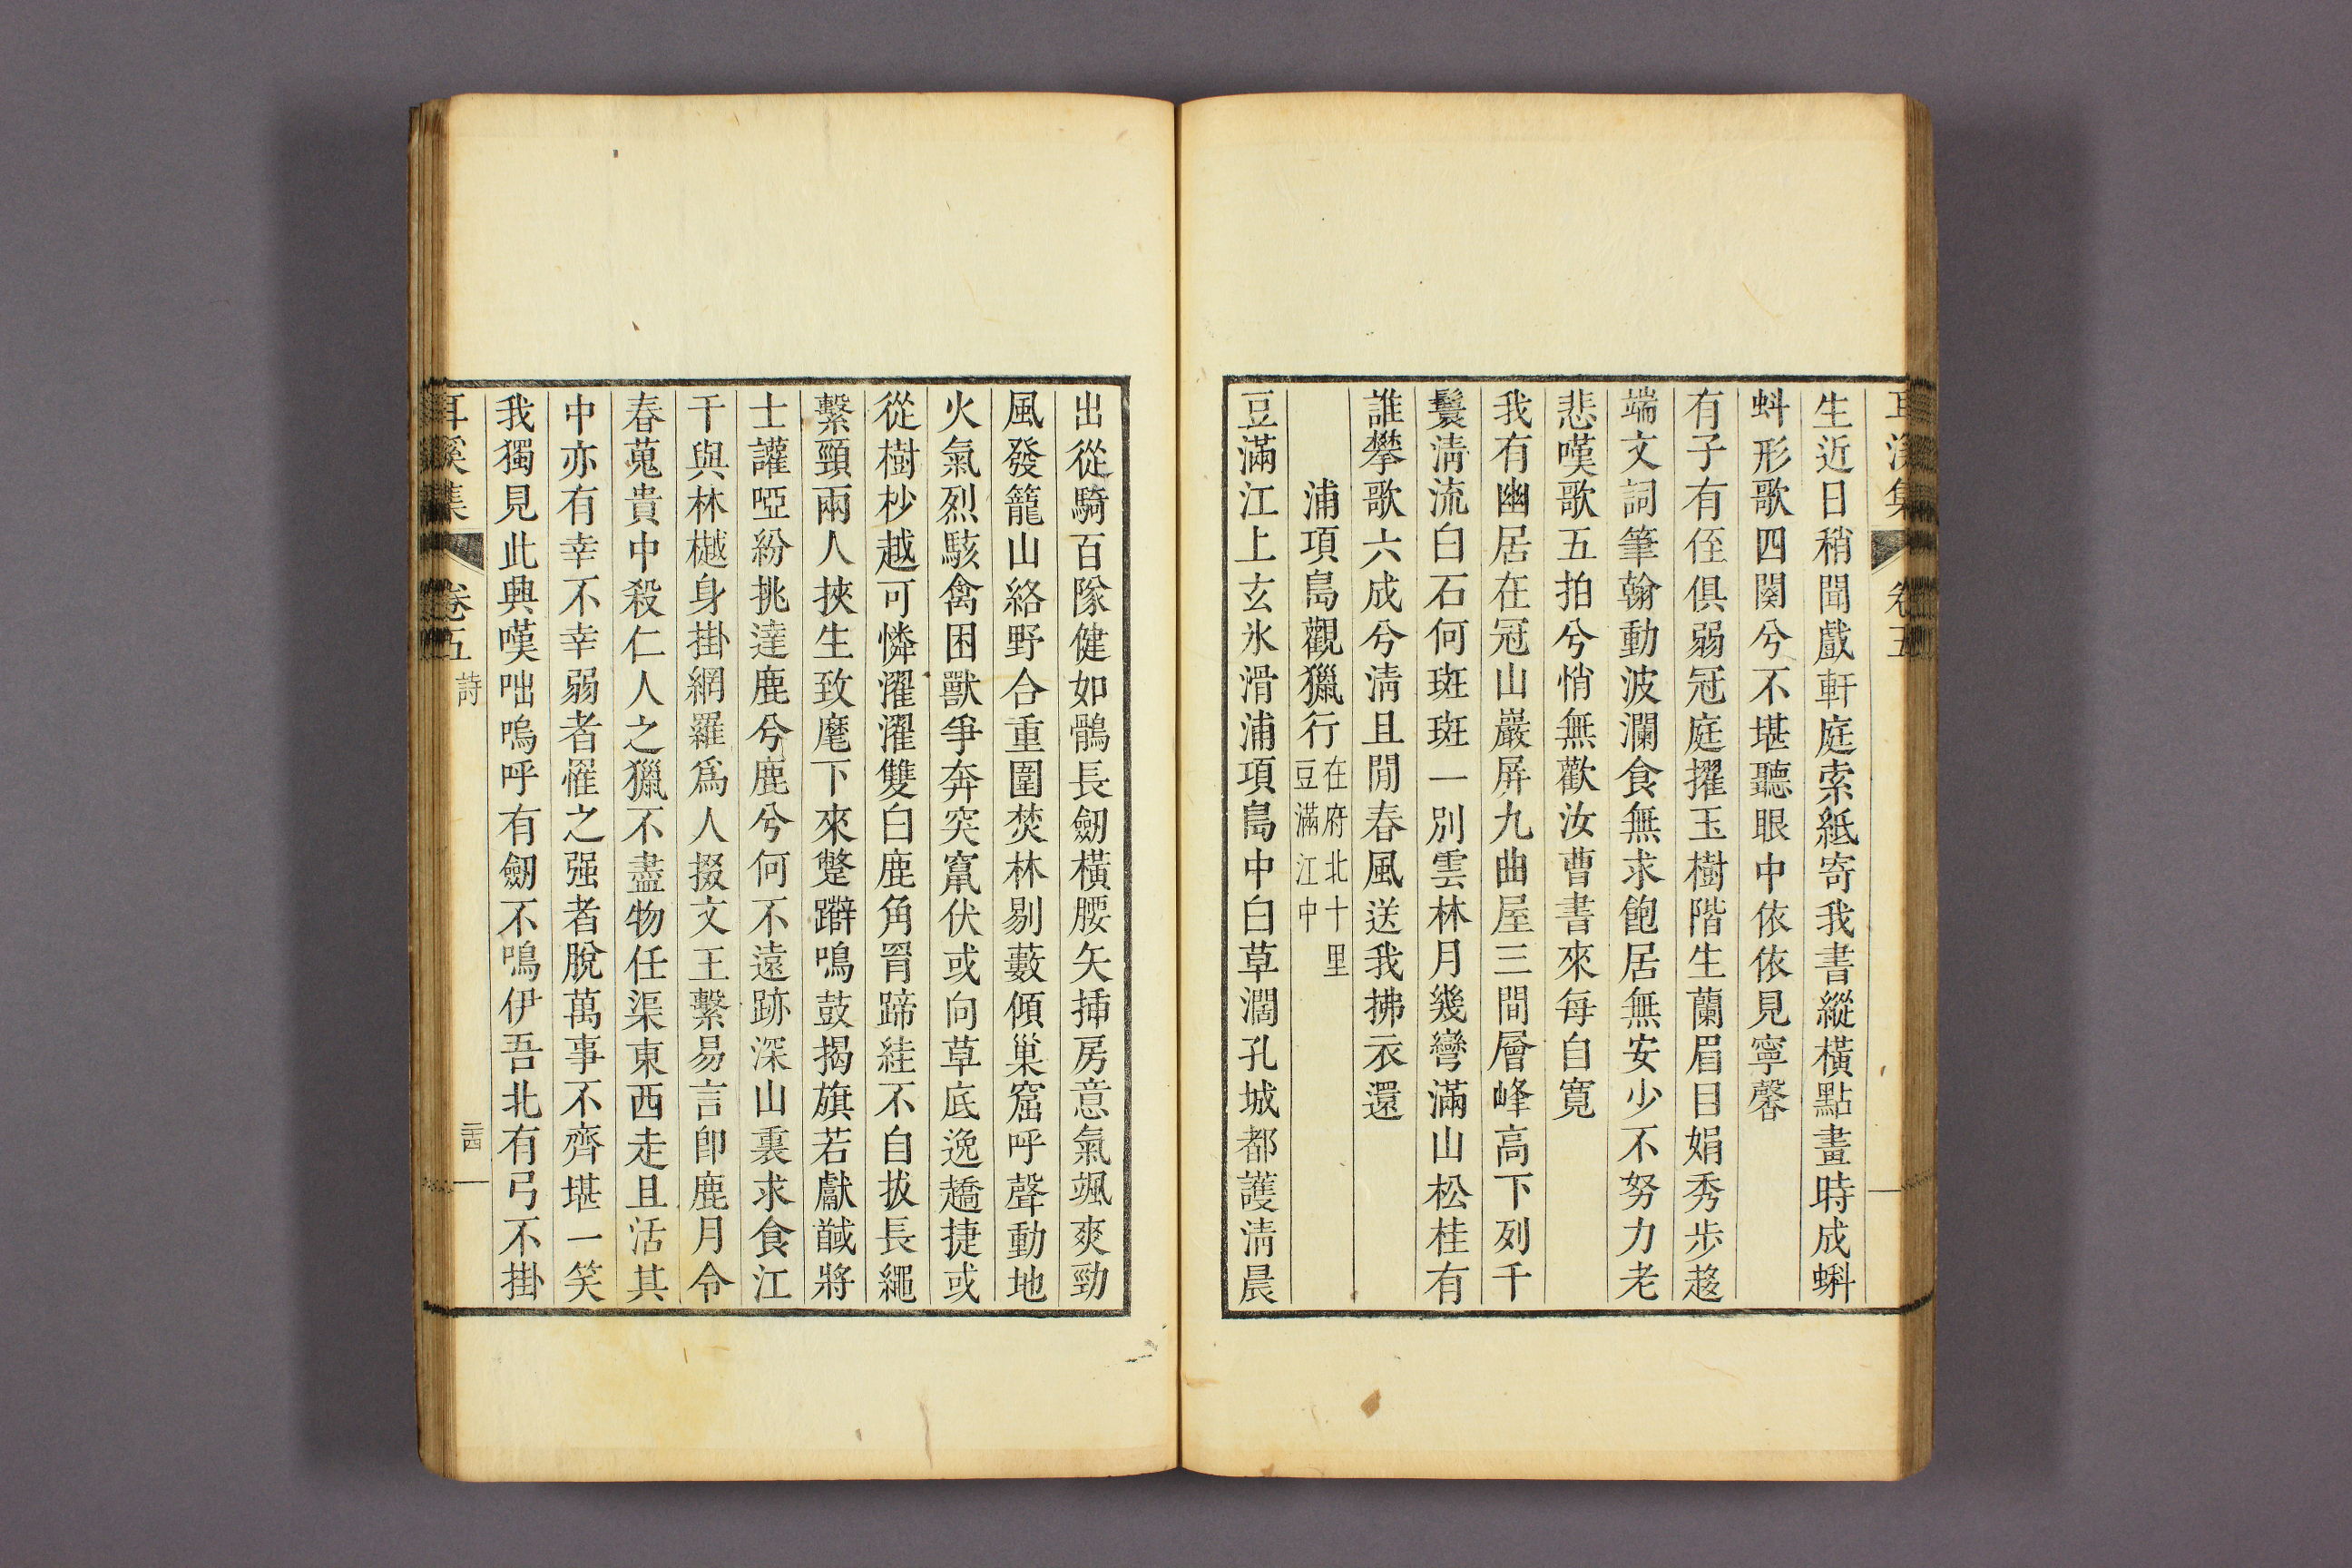 耳溪集 卷五
生近日稍聞戲軒庭索紙寄我書縱橫點畫時成蝌
蚪形歌四闋兮不堪聽眼中依依見寧馨
有子有侄俱弱冠庭擢玉樹階生蘭眉目娟秀步趍
端文詞筆翰動波瀾食無求飽居無安少不努力老
悲嘆歌五拍兮悄無歡汝曹書來每自寬
我有幽居在冠山巖屏九曲屋三間層峰高下列千
鬟清流白石何斑斑一別雲林月幾彎滿山松桂有
誰攀歌六成兮淸且閒春風送我拂衣還
浦項島觀獵行在府北十里豆滿江中
豆滿江上玄氷滑浦項島中白草濶孔城都護淸晨
出從騎百隊健如鶻長劒橫腰矢揷房意氣颯爽勁
風發籠山絡野合重圍焚林剔藪傾巢窟呼聲動地
火氣烈駭禽困獸爭奔突竄伏或向草底逸趫捷或
從樹杪越可憐濯濯雙白鹿角罥蹄絓不自拔長繩
繫頸兩人挾生致麾下來蹩躃鳴鼓揭旗若獻馘將
士讙啞紛挑達鹿兮鹿兮何不遠跡深山裏求食江
干與林樾身掛網羅爲人掇文王繫易言卽鹿月令
春蒐貴中殺仁人之獵不盡物任渠東西走且活其
中亦有幸不幸弱者罹之强者脫萬事不齊堪一笑
我獨見此興嘆咄嗚呼有劒不鳴伊吾北有弓不掛
耳溪集 卷五 詩 三四